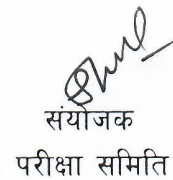 संयोजक
परीक्षा समिति